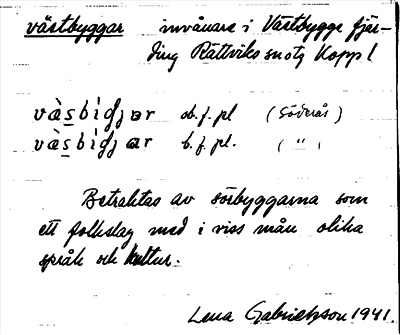 västbyggar invånare i Västbygge fjär-
ding Rättviks sn o tg Kopp l
vàsbìǥjar ob. f. pl (Söderås)
vàsbìǥjar b. f. pl. ( " )
Betraktas av sörbyggarna som
ett folkslag med i viss mån olika
språk och kultur.
Lena Gabrielsson 1941.